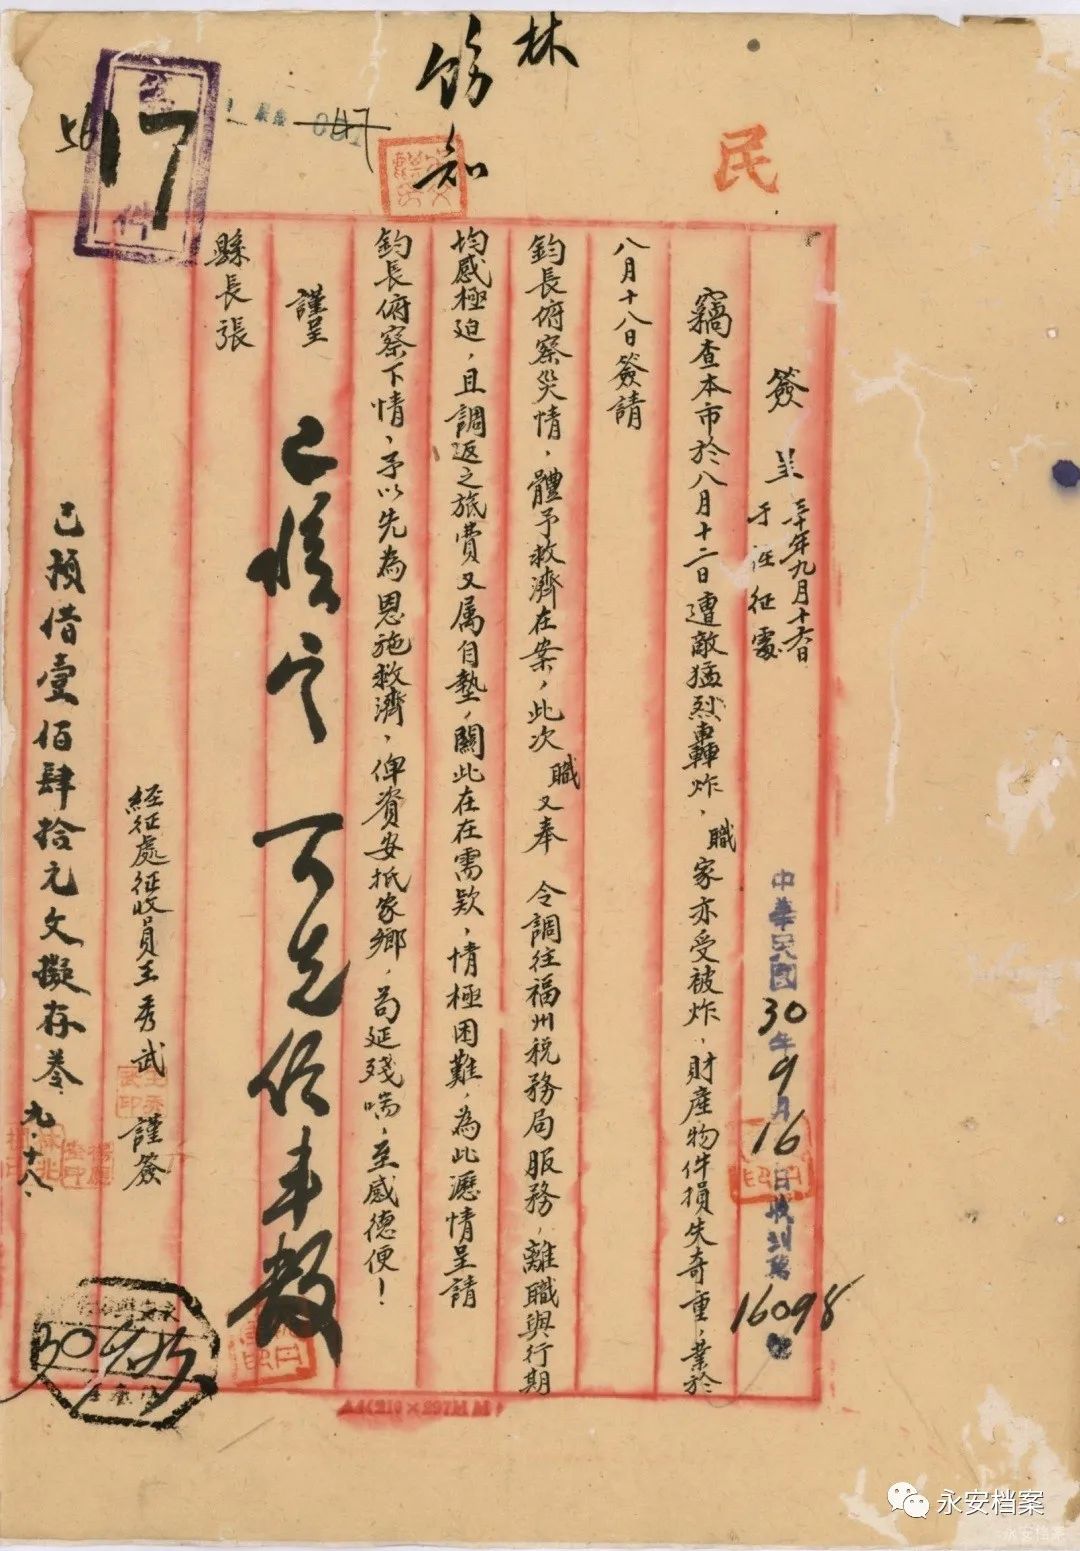 林
飭知
民
17
件
簽呈 三十年九月十六日
于經征處
竊查本市於八月十二日遭敵猛烈轟炸，職家亦受被炸，財產物件損失奇重，業於
八月十八日簽請
鈞長俯察災情，體予救濟在案，此次職又奉 令調往福州稅務局服務，離職與行期
均感極迫，且調返之旅費又屬自墊，關此在在需款，情極困難，為此瀝情呈請
鈞長俯察下情，予以先為恩施救濟，俾資安抵家鄉，苟延殘喘，至感德便！
謹呈
縣長張
經征處征收員王秀武 謹簽
已預借壹佰肆拾元文擬存卷 九、十八、
中華民國30年9月16日收到
16098號
王秀武印
永安档案
永安档案